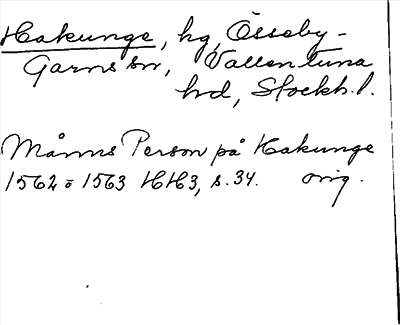 Hakunge, hg, Össeby-
Garns sn, Vallentuna
hd, Stockh. l.
Måns Person på Hakunge
1562 o 1563 HH3, s. 34. orig.